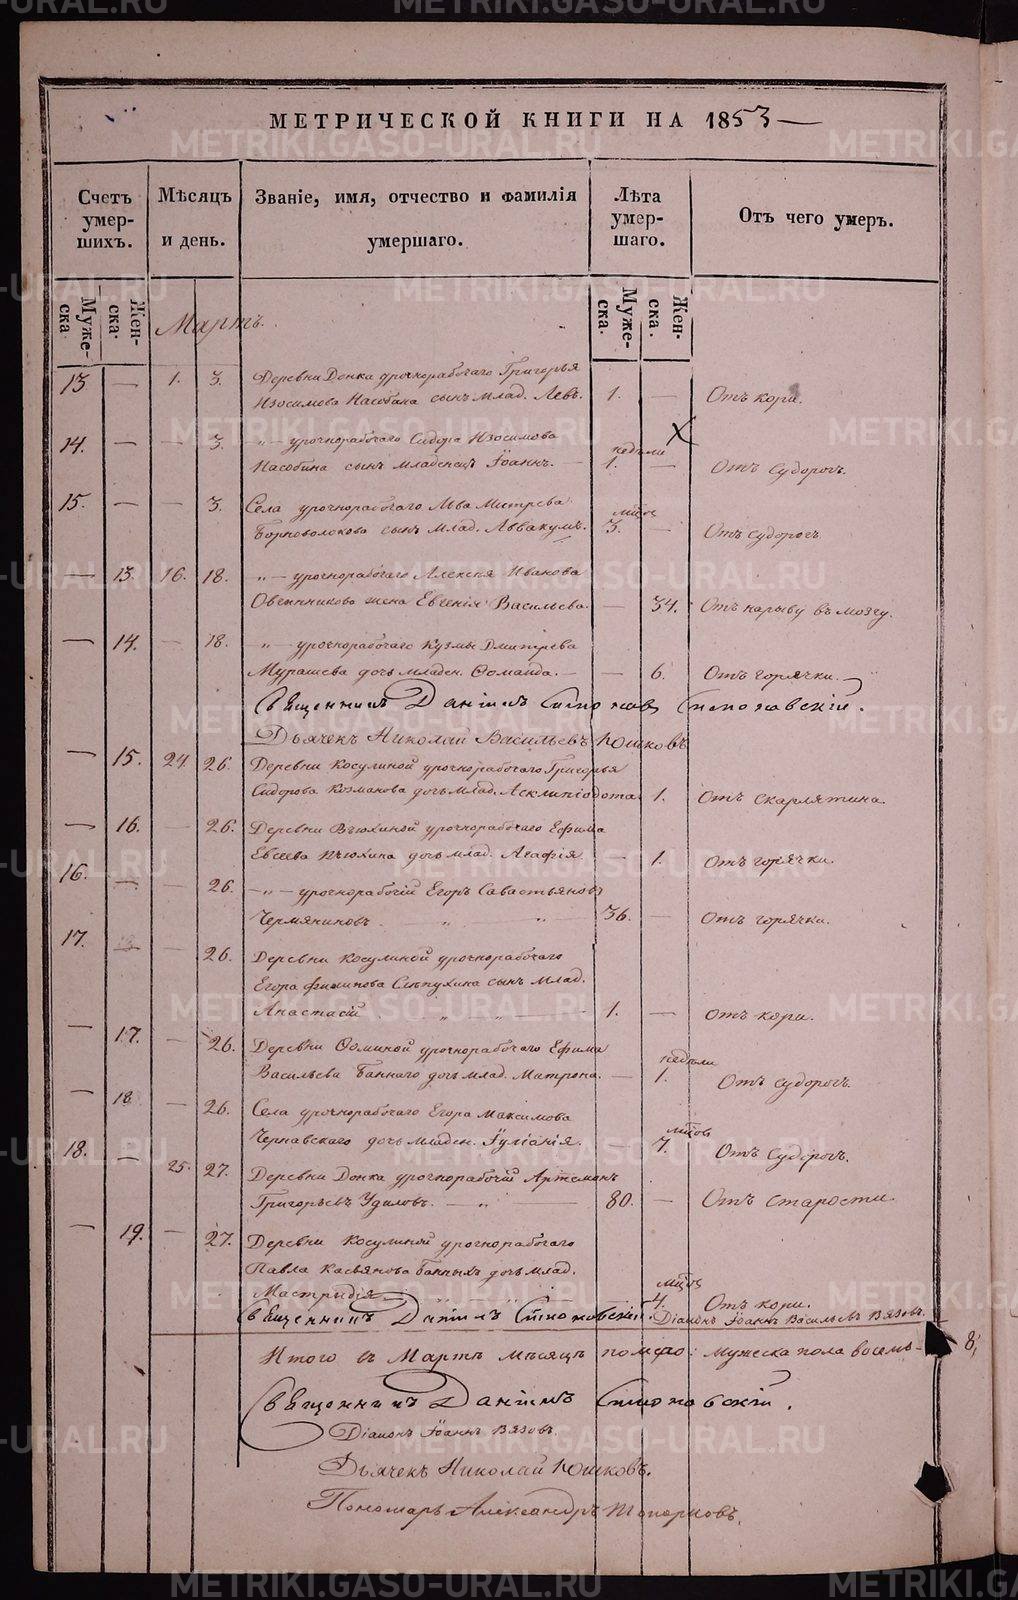 МЕТРИЧЕСКОЙ КНИГИ НА 1853
Счетъ умер-шихъ. Мѣсяцъ и день. Званіе, имя, отчество и фамилія умершаго. Лѣта умер-шаго. Отъ чего умеръ.
Муже-ска Жен-ска. Муже-ска. Жен-ска.
Мартъ.
13 — 1. 3. Деревни Донка урочнорабочаго Григорья
Изосимова Насобина сынъ млад. Левъ. 1. — Отъ кори.
14. — — 3. „ — урочнорабочаго Сидора Изосимова
Насобина сынъ младенецъ Іоаннъ. — недели 1. — Отъ судорогъ.
15. — — 3. Села урочнорабочаго Льва Митрева
Борноволокова сынъ млад. Аввакумъ. мцов 3. — Отъ судорогъ.
— 13. 16. 18. „ — урочнорабочаго Алексея Иванова
Овчинникова жена Евгенія Васильева. — 34. Отъ нарыву въ мозгу.
— 14. — 18. „ — урочнорабочаго Кузмы Дмитрева
Мурашева дочь младен. Фомаида. — — 6. Отъ горячки.
Священникъ Даніилъ Стоновскій.
Дьячекъ Николай Васильевъ Юшковъ
— 15. 24. 26. Деревни Косулиной урочнорабочаго Григорья
Сидорова Козманова дочь млад. Асклипіодота. 1. Отъ скарлятина.
— 16. — 26. Деревни Вьюхиной урочнорабочаго Ефима
Евсеева Вьюхина дочь млад. Агафія. — 1. Отъ горячки.
16. — — 26. — „ — урочнорабочій Егоръ Савастьяновъ
Чермяниновъ. „ „ 36. — Отъ горячки.
17. — 26. Деревни Косулиной урочнорабочаго
Егора Филипова Слепухина сынъ млад.
Анастасій „ „ 1. — Отъ кори.
— 17. — 26. Деревни Фоминой урочнорабочаго Ефима
Васильева Баннаго дочь млад. Матрона. — недели 1. Отъ судорогъ.
18. 26. Села урочнорабочаго Егора Максимова
Чернавскаго дочь младен. Іуліанія. — мцовъ 7. Отъ судорогъ.
18. — 25. 27. Деревни Донка урочнорабочій Артемонъ
Григорьевъ Удиловъ. — „ — 80. — Отъ старости.
— 19. — 27. Деревни Косулиной урочнорабочаго
Павла Касьянова Банныхъ дочь млад.
Мастридія мцов 4. Отъ кори.
Священникъ Даніилъ Стоновскій. Діаконъ Іоаннъ Васильевъ Вязовъ.
Итого въ Мартѣ мѣсяцѣ помѣро: мужеска пола восемь — 8,
Священникъ Даніилъ Стоновскій.
Діаконъ Іоаннъ Вязовъ.
Дьячекъ Николай Юшковъ.
Пономарь Александръ Топорковъ.
METRIKI.GASO-URAL.RU